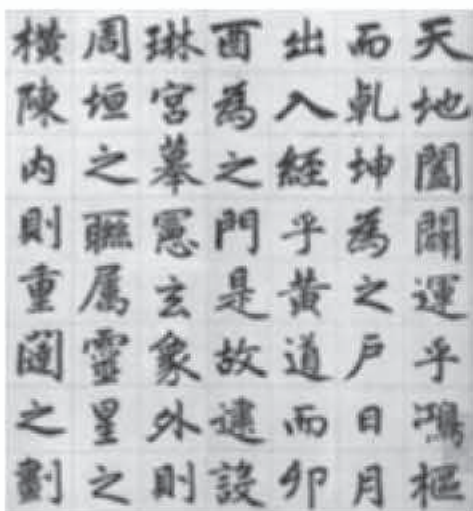 天地闔闢運乎鴻樞
而乹坤為之戶日月
出入經乎黃道而卯
酉為之門是故建設
琳宮摹憲玄象外則
周垣之聯属靈星之
橫陳內則重闥之劃